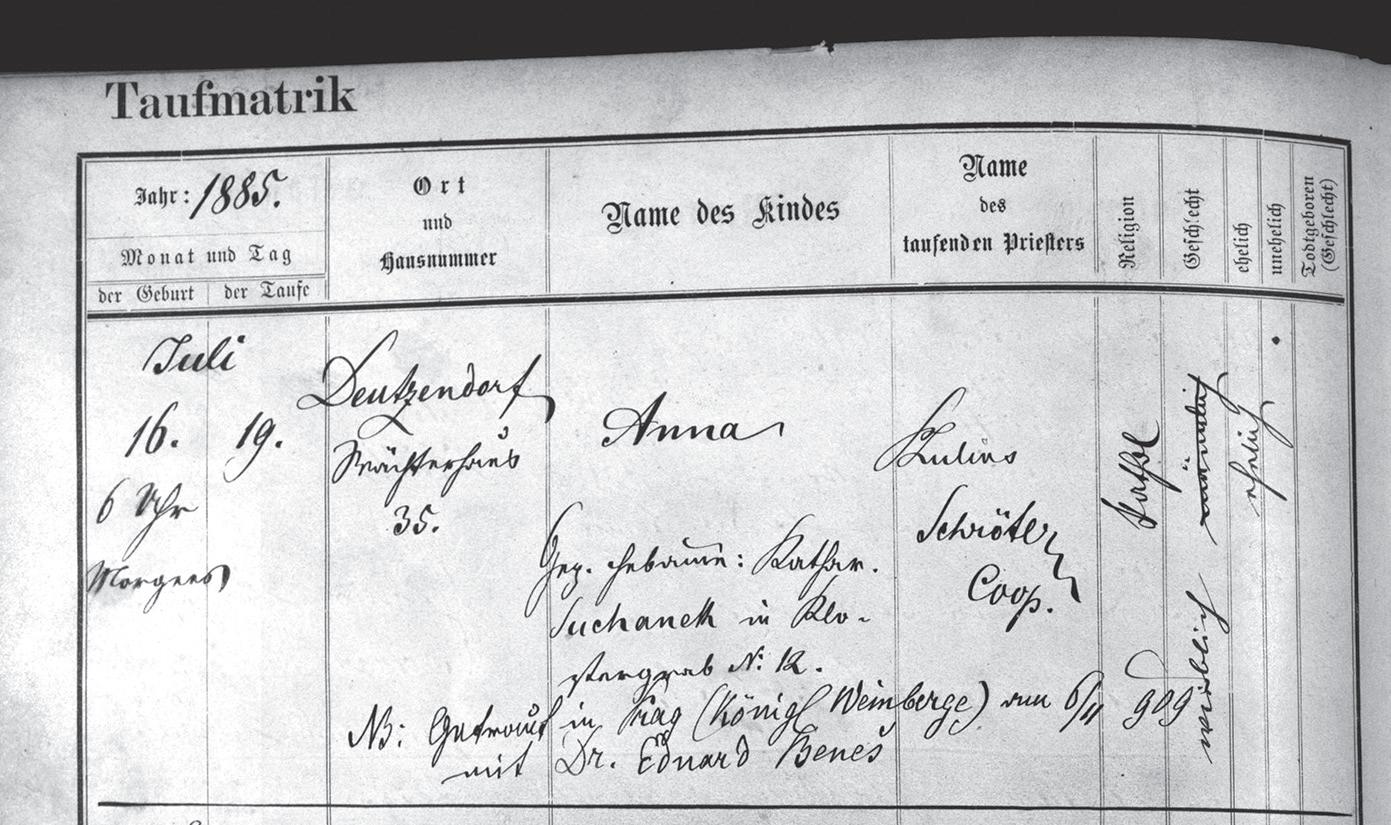 Taufmatrik
Jahr: 1885.
Monat und Tag
der Geburt
der Taufe
Ort
und
Hausnummer
Name des Kindes
Name
des
taufenden Priesters
Religion
Geschlecht
ehelich
unehelich
Todtgeboren
(Geschlecht)
Juli
16.
19.
6 Uhr
Morgens
Deutzendorf
Wächterhaus
35.
Anna
Gep. Hebamme: Kathar.
Suchanek in Klo-
stergrab N: 12.
Julius
Schröter
Coop.
kathol
männlich
weiblich
ehelich
NB: Getraut in Prag (Königl Weinberge) am 6/11 909
mit Dr. Eduard Beneš